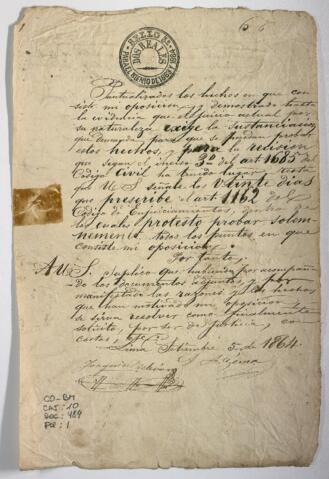 6 6
SELLO 3º
DOS REALES
PARA EL BIENIO DE 1863 Y 1864
Puntualizados los hechos en que con-
siste mi oposicion, y demostrado hasta
la evidencia que el juicio actual por
su naturaleza exige la sustanciacion
que demanda, para que se puedan probar
estos hechos, y para la
que segun el inciso 3º del artº 1685 del
Codigo Civil ha tenido lugar, resta
que U.S. señale los veinte dias
que prescribe el artº 1162 del
Codigo de Enjuiciamientos, dentro de
los cuales protesto probar solem-
nemente todos los puntos en que
consiste mi oposicion.
Por tanto,
A U.S. suplico que habiendo por acompaña-
do los documentos adjuntos y por
manifestadas las razones y los hechos
que han motivado mi oposicion,
se sirva resolver como finalmente
solicito, por ser de justicia, con
costas,
Lima Setiembre 5 de 1864.
Joaquin
CO-BM
CAJ: 10
DOC: 489
FOL: 1